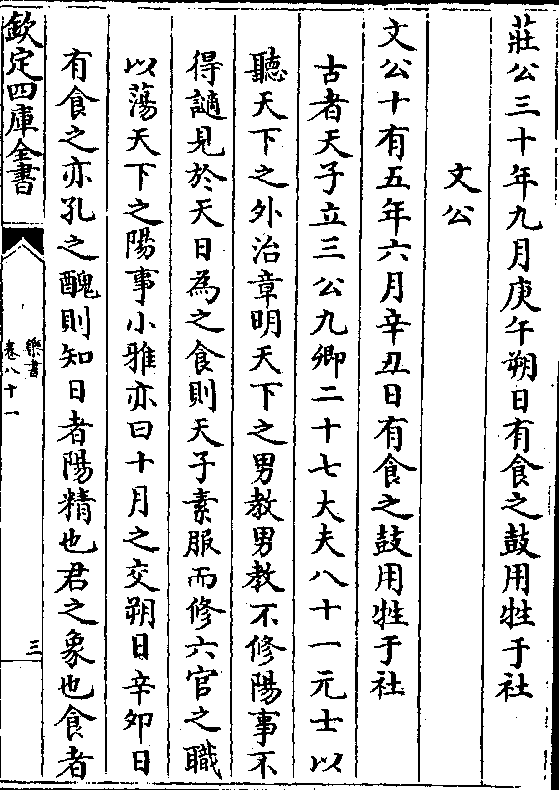 莊公三十年九月庚午朔日有食之鼓用牲于社
文公
文公十有五年六月辛丑日有食之鼓用牲于社
古者天子立三公九卿二十七大夫八十一元士以
聽天下之外治章明天下之男教男教不修陽事不
得謫見於天日為之食則天子素服而修六官之職
以蕩天下之陽事小雅亦曰十月之交朔日辛卯日
有食之亦孔之醜則知日者陽精也君之象也食者
欽定四庫全書
樂書
卷八十一
三